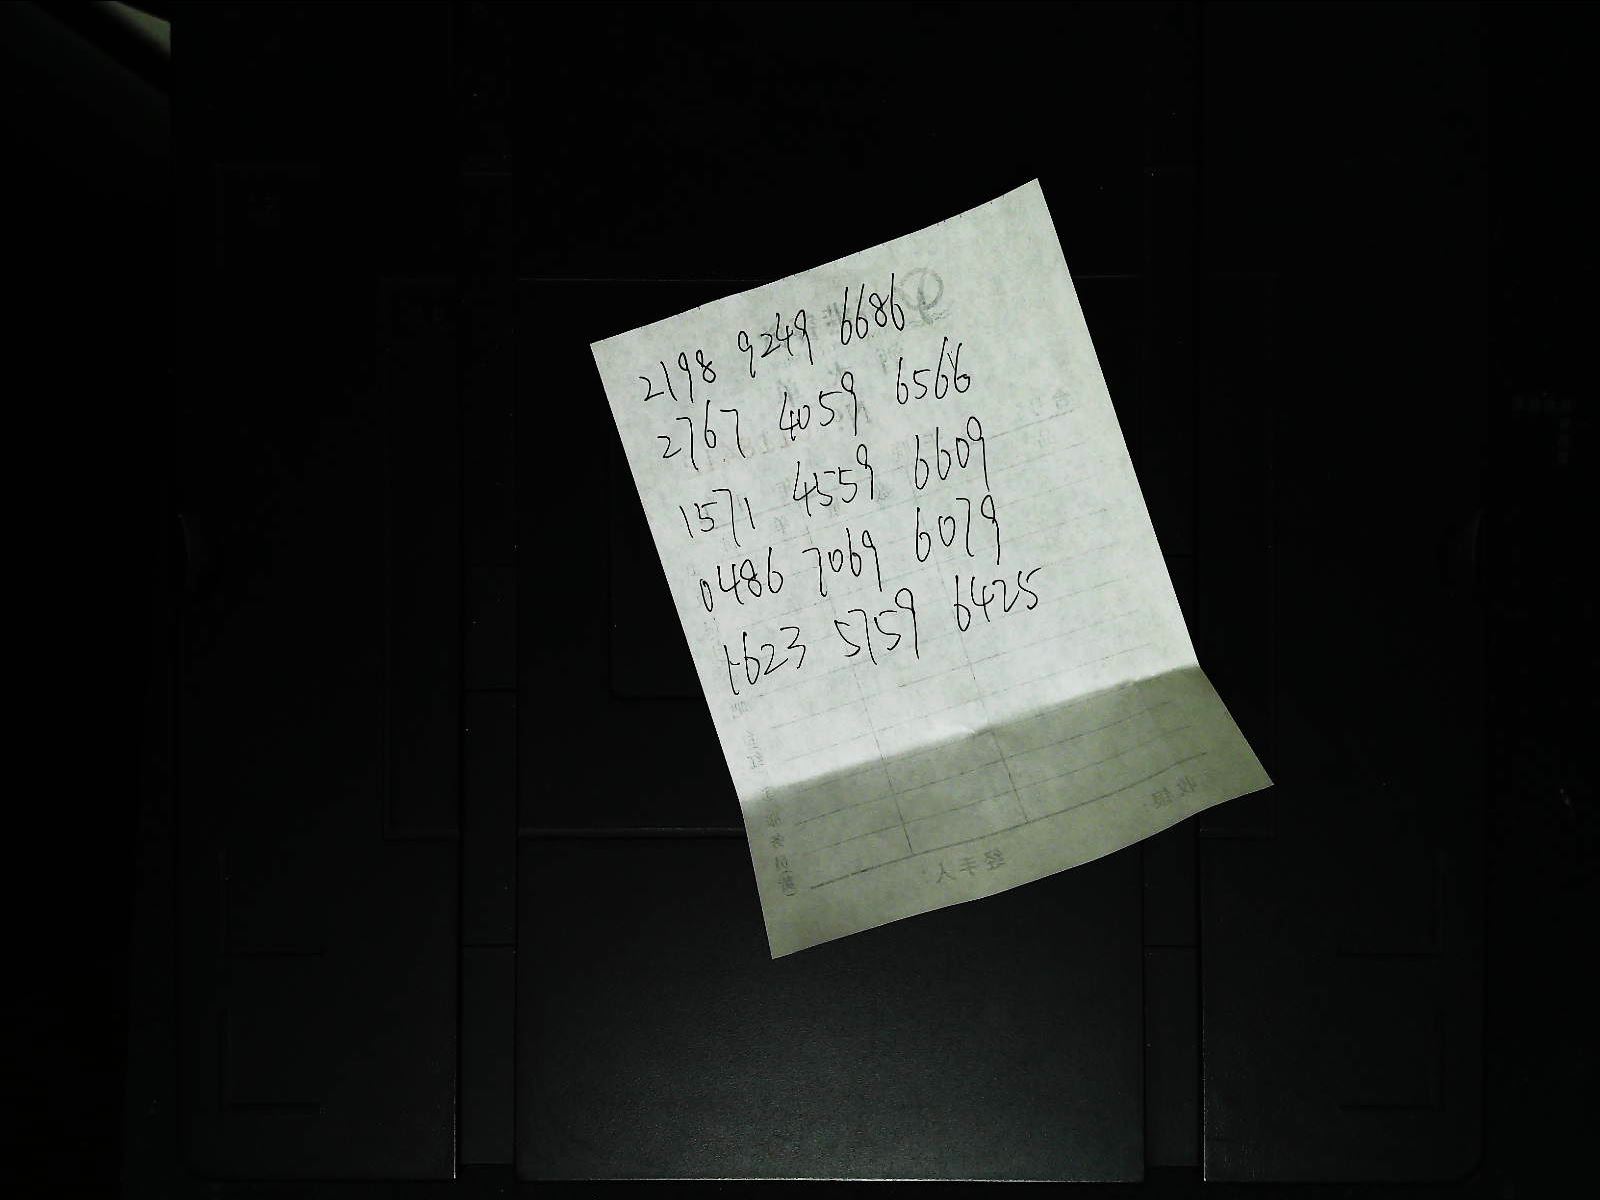 2198 9249 6686
2767 4059 6566
1571 4559 6609
0486 7069 6079
1623 5759 6425
收银:
经手人: